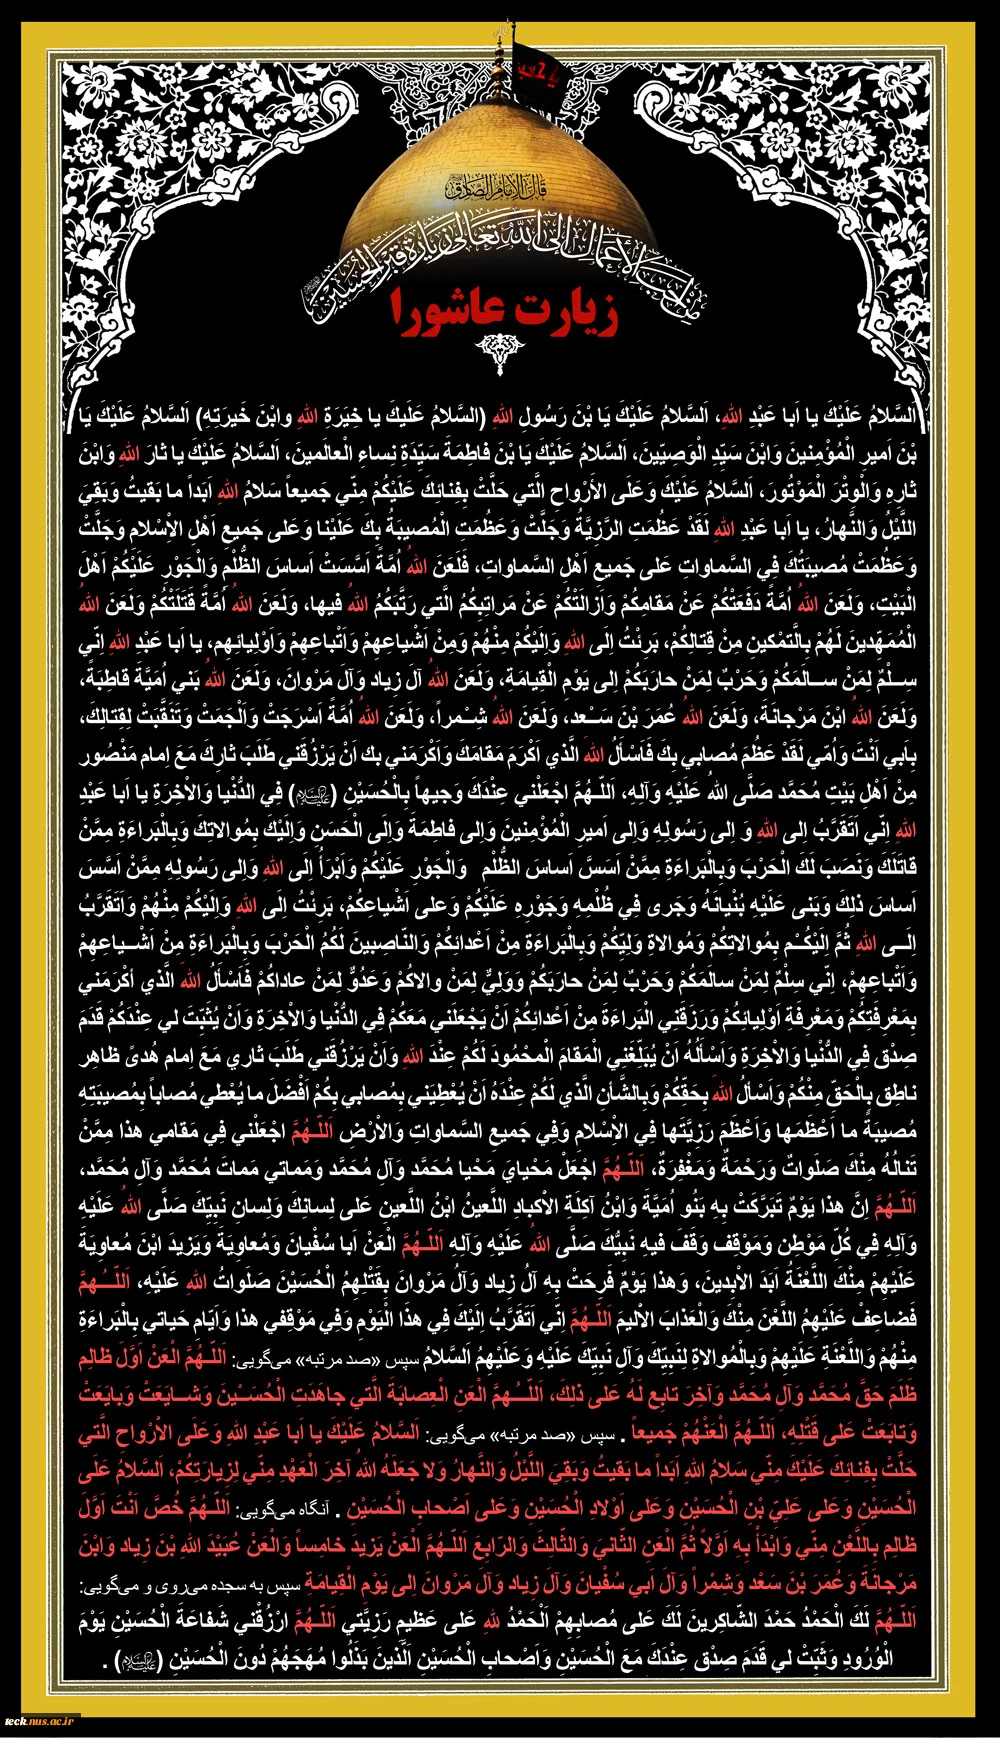 يا حسين
قالَ الإمامُ الصّادِق
مِن اَحَبِّ الأعمالِ اِلَی اللهِ تَعالی زِیارَةُ قَبْرِ الحُسَیْن
زیارت عاشورا
اَلسَّلامُ عَلَيْكَ يا اَبا عَبْدِ اللهِ، اَلسَّلامُ عَلَيْكَ يَا بْنَ رَسُولِ اللهِ (السَّلامُ عَلَيكَ يا خِيَرَةِ اللهِ وابْنَ خَيرَتِه) اَلسَّلامُ عَلَيْكَ يَا
بْنَ اَميرِ الْمُؤْمِنينَ وَابْنَ سَيِّدِ الْوَصِيّينَ، اَلسَّلامُ عَلَيْكَ يَا بْنَ فاطِمَةَ سَيِّدَةِ نِساءِ الْعالَمينَ، اَلسَّلامُ عَلَيْكَ يا ثارَ اللهِ وَابْنَ
ثارِهِ وَالْوِتْرَ الْمَوْتُورَ، اَلسَّلامُ عَلَيْكَ وَعَلَى الأَرْواحِ الَّتي حَلَّتْ بِفِنائِكَ عَلَيْكُمْ مِنّي جَميعاً سَلامُ اللهِ اَبَداً ما بَقيتُ وَبَقِيَ
اللَّيْلُ وَالنَّهارُ، يا اَبا عَبْدِ اللهِ لَقَدْ عَظُمَتِ الرَّزِيَّةُ وَجَلَّتْ وَعَظُمَتِ الْمُصيبَةُ بِكَ عَلَيْنا وَعَلى جَميعِ اَهْلِ الاْسْلامِ وَجَلَّتْ
وَعَظُمَتْ مُصيبَتُكَ فِي السَّماواتِ عَلى جَميعِ اَهْلِ السَّماواتِ، فَلَعَنَ اللهُ اُمَّةً اَسَّسَتْ اَساسَ الظُّلْمِ وَالْجَوْرِ عَلَيْكُمْ اَهْلَ
الْبَيْتِ، وَلَعَنَ اللهُ اُمَّةً دَفَعَتْكُمْ عَنْ مَقامِكُمْ وَاَزالَتْكُمْ عَنْ مَراتِبِكُمُ الَّتي رَتَّبَكُمُ اللهُ فيها، وَلَعَنَ اللهُ اُمَّةً قَتَلَتْكُمْ وَلَعَنَ اللهُ
الْمُمَهِّدينَ لَهُمْ بِالَّتمْكينِ مِنْ قِتالِكُمْ، بَرِئْتُ اِلَى اللهِ وَاِلَيْكُمْ مِنْهُمْ وَمِنْ اَشْياعِهِمْ وَاَتْباعِهِمْ وَاَوْلِيائِهِم، يا اَبا عَبْدِ اللهِ اِنّي
سِــلْمٌ لِمَنْ ســالَمَكُمْ وَحَرْبٌ لِمَنْ حارَبَكُمْ اِلى يَوْمِ الْقِيامَةِ، وَلَعَنَ اللهُ آلَ زِياد وَآلَ مَرْوانَ، وَلَعَنَ اللهُ بَني اُمَيَّةَ قاطِبَةً،
وَلَعَنَ اللهُ ابْنَ مَرْجانَةَ، وَلَعَنَ اللهُ عُمَرَ بْنَ سَــعْد، وَلَعَنَ اللهُ شِــمْراً، وَلَعَنَ اللهُ اُمَّةً اَسْرَجَتْ وَاَلْجَمَتْ وَتَنَقَّبَتْ لِقِتالِكَ،
بِاَبي اَنْتَ وَاُمّي لَقَدْ عَظُمَ مُصابي بِكَ فَاَسْأَلُ اللهَ الَّذي اَكْرَمَ مَقامَكَ وَاَكْرَمَني بِكَ اَنْ يَرْزُقَني طَلَبَ ثارِكَ مَعَ اِمام مَنْصُور
مِنْ اَهْلِ بَيْتِ مُحَمَّد صَلَّى اللهُ عَلَيْهِ وَآلِهِ، اَللّـهُمَّ اجْعَلْني عِنْدَكَ وَجيهاً بِالْحُسَيْنِ (علیه‌السلام) فِي الدُّنْيا وَالاْخِرَةِ يا اَبا عَبْدِ
اللهِ اِنّي اَتَقَرَّبُ اِلى اللهِ وَ اِلى رَسُولِهِ وَاِلى اَميرِ الْمُؤْمِنينَ وَاِلى فاطِمَةَ وَاِلَى الْحَسَنِ وَاِلَيْكَ بِمُوالاتِكَ وَبِالْبَراءَةِ مِمَّنْ
قاتَلَكَ وَنَصَبَ لَكَ الْحَرْبَ وَبِالْبَراءَةِ مِمَّنْ اَسَسَّ اَساسَ الظُّلْمِ وَالْجَوْرِ عَلَيْكُمْ وَاَبْرَأُ اِلَى اللهِ وَاِلى رَسُولِهِ مِمَّنْ اَسَّسَ
اَساسَ ذلِكَ وَبَنى عَلَيْهِ بُنْيانَهُ وَجَرى فِي ظُلْمِهِ وَجَوْرِهِ عَلَيْكُمْ وَعلى اَشْياعِكُمْ، بَرِئْتُ اِلَى اللهِ وَاِلَيْكُمْ مِنْهُمْ وَاَتَقَرَّبُ
اِلَــى اللهِ ثُمَّ اِلَيْكُــمْ بِمُوالاتِكُمْ وَمُوالاةِ وَلِيِّكُمْ وَبِالْبَراءَةِ مِنْ اَعْدائِكُمْ وَالنّاصِبينَ لَكُمُ الْحَرْبَ وَبِالْبَراءَةِ مِنْ اَشْــياعِهِمْ
وَاَتْباعِهِمْ، اِنّي سِلْمٌ لِمَنْ سالَمَكُمْ وَحَرْبٌ لِمَنْ حارَبَكُمْ وَوَلِيٌّ لِمَنْ والاكُمْ وَعَدُوٌّ لِمَنْ عاداكُمْ فَاَسْأَلُ اللهَ الَّذي أكْرَمَني
بِمَعْرِفَتِكُمْ وَمَعْرِفَةِ اَوْلِيائِكُمْ وَرَزَقَنيِ الْبَراءَةَ مِنْ اَعْدائِكُمْ اَنْ يَجْعَلَني مَعَكُمْ فِي الدُّنْيا وَالاْخِرَةِ وَاَنْ يُثَبِّتَ لي عِنْدَكُمْ قَدَمَ
صِدْق فِي الدُّنْيا وَالاْخِرَةِ وَاَسْأَلُهُ اَنْ يُبَلِّغَنِي الْمَقامَ الَْمحْمُودَ لَكُمْ عِنْدَ اللهِ وَاَنْ يَرْزُقَني طَلَبَ ثاري مَعَ اِمام هُدىً ظاهِر
ناطِق بِالْحَقِّ مِنْكُمْ وَاَسْألُ اللهَ بِحَقِّكُمْ وَبِالشَّأنِ الَّذي لَكُمْ عِنْدَهُ اَنْ يُعْطِيَني بِمُصابي بِكُمْ اَفْضَلَ ما يُعْطي مُصاباً بِمُصيبَتِهِ
مُصيبَةً ما اَعْظَمَها وَاَعْظَمَ رَزِيَّتَها فِي الاْسْلامِ وَفِي جَميعِ السَّماواتِ وَالاْرْضِ اَللّـهُمَّ اجْعَلْني في مَقامي هذا مِمَّنْ
تَنالُهُ مِنْكَ صَلَواتٌ وَرَحْمَةٌ وَمَغْفِرَةٌ، اَللّـهُمَّ اجْعَلْ مَحْيايَ مَحْيا مُحَمَّد وَآلِ مُحَمَّد وَمَماتي مَماتَ مُحَمَّد وَآلِ مُحَمَّد،
اَللّـهُمَّ اِنَّ هذا يَوْمٌ تَبَرَّكَتْ بِهِ بَنُو اُمَيَّةَ وَابْنُ آكِلَةِ الاْكبادِ اللَّعينُ ابْنُ اللَّعينِ عَلى لِسانِكَ وَلِسانِ نَبِيِّكَ صَلَّى اللهُ عَلَيْهِ
وَآلِهِ فِي كُلِّ مَوْطِن وَمَوْقِف وَقَفَ فيهِ نَبِيُّكَ صَلَّى اللهُ عَلَيْهِ وَآلِهِ اَللّـهُمَّ الْعَنْ اَبا سُفْيانَ وَمُعاوِيَةَ وَيَزيدَ ابْنَ مُعاوِيَةَ
عَلَيْهِمْ مِنْكَ اللَّعْنَةُ اَبَدَ الاْبِدينَ، وَهذا يَوْمٌ فَرِحَتْ بِهِ آلُ زِياد وَآلُ مَرْوانَ بِقَتْلِهِمُ الْحُسَيْنَ صَلَواتُ اللهِ عَلَيْهِ، اَللّــهُمَّ
فَضاعِفْ عَلَيْهِمُ اللَّعْنَ مِنْكَ وَالْعَذابَ الاَْليمَ اَللّـهُمَّ اِنّي اَتَقَرَّبُ اِلَيْكَ في هذَا الْيَوْمِ وَفي مَوْقِفي هذا وَاَيّامِ حَياتي بِالْبَراءَةِ
مِنْهُمْ وَاللَّعْنَةِ عَلَيْهِمْ وَبِالْمُوالاةِ لِنَبِيِّكَ وَآلِ نَبِيِّكَ عَلَيْهِ وَعَلَيْهِمُ اَلسَّلامُ سپس «صد مرتبه» می‌گویی: اَللّـهُمَّ الْعَنْ اَوَّلَ ظالِم
ظَلَمَ حَقَّ مُحَمَّد وَآلِ مُحَمَّد وَآخِرَ تابِع لَهُ عَلى ذلِكَ، اَللّــهُمَّ الْعَنِ الْعِصابَةَ الَّتي جاهَدَتِ الْحُسَــيْنَ وَشــايَعَتْ وَبايَعَتْ
وَتابَعَتْ عَلى قَتْلِهِ، اَللّـهُمَّ الْعَنْهُمْ جَميعاً . سپس «صد مرتبه» می‌گویی: اَلسَّلامُ عَلَيْكَ يا اَبا عَبْدِ اللهِ وَعَلَى الاْرْواحِ الَّتي
حَلَّتْ بِفِنائِكَ عَلَيْكَ مِنّي سَلامُ اللهِ اَبَداً ما بَقيتُ وَبَقِيَ اللَّيْلُ وَالنَّهارُ وَلا جَعَلَهُ اللهُ آخِرَ الْعَهْدِ مِنّي لِزِيارَتِكُمْ، اَلسَّلامُ عَلَى
الْحُسَيْنِ وَعَلى عَلِيِّ بْنِ الْحُسَيْنِ وَعَلى اَوْلادِ الْحُسَيْنِ وَعَلى اَصْحابِ الْحُسَيْنِ . آنگاه می‌گویی: اَللّـهُمَّ خُصَّ اَنْتَ اَوَّلَ
ظالِم بِاللَّعْنِ مِنّي وَابْدَأْ بِهِ اَوَّلاً ثُمَّ الْعَنِ الثّانيَ وَالثّالِثَ وَالرّابِعَ اَللّـهُمَّ الْعَنْ يَزيدَ خامِساً وَالْعَنْ عُبَيْدَ اللهِ بْنَ زِياد وَابْنَ
مَرْجانَةَ وَعُمَرَ بْنَ سَعْد وَشِمْراً وَآلَ اَبي سُفْيانَ وَآلَ زِياد وَآلَ مَرْوانَ اِلى يَوْمِ الْقِيامَةِ سپس به سجده می‌روی و می‌گویی:
اَللّـهُمَّ لَكَ الْحَمْدُ حَمْدَ الشّاكِرينَ لَكَ عَلى مُصابِهِمْ اَلْحَمْدُ للهِ عَلى عَظيمِ رَزِيَّتي اَللّـهُمَّ ارْزُقْني شَفاعَةَ الْحُسَيْنِ يَوْمَ
الْوُرُودِ وَثَبِّتْ لي قَدَمَ صِدْق عِنْدَكَ مَعَ الْحُسَيْنِ وَاَصْحابِ الْحُسَيْنِ اَلَّذينَ بَذَلُوا مُهَجَهُمْ دُونَ الْحُسَيْنِ (علیه‌السلام) .
teck.nus.ac.ir